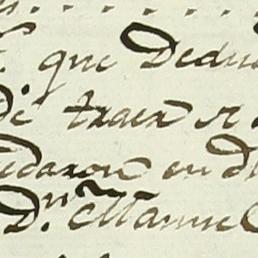 que Dedu
De traer si
edaron en d
Dn. Manue